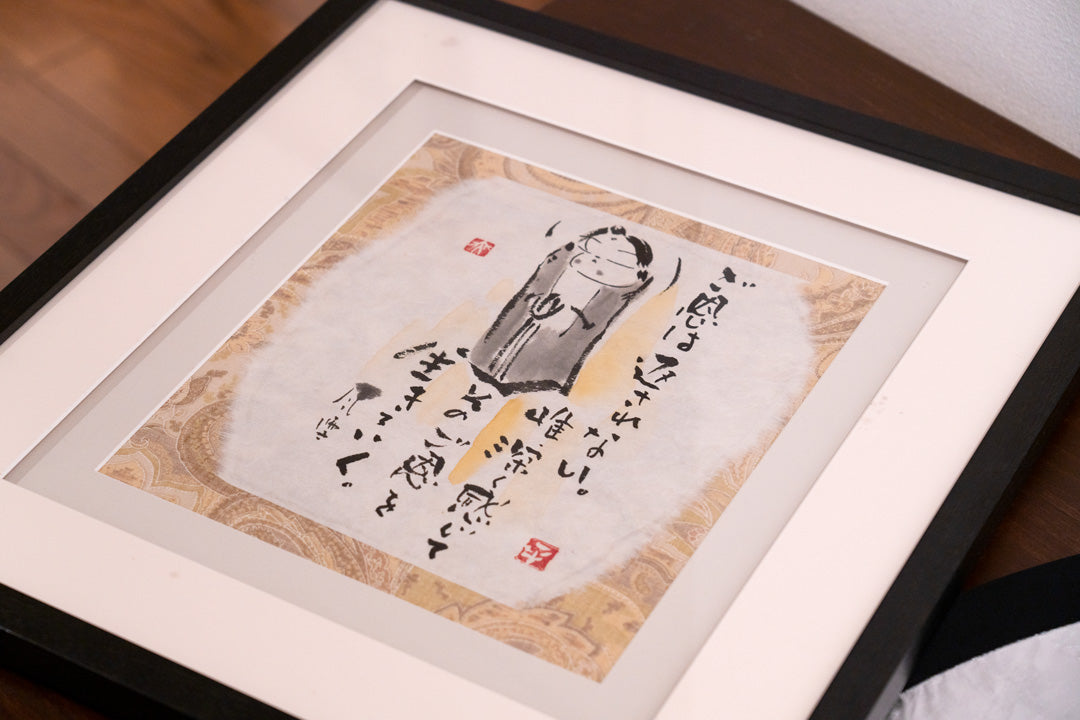 ご恩は返されない。
唯深く感じて
そのご恩を
生きていく。